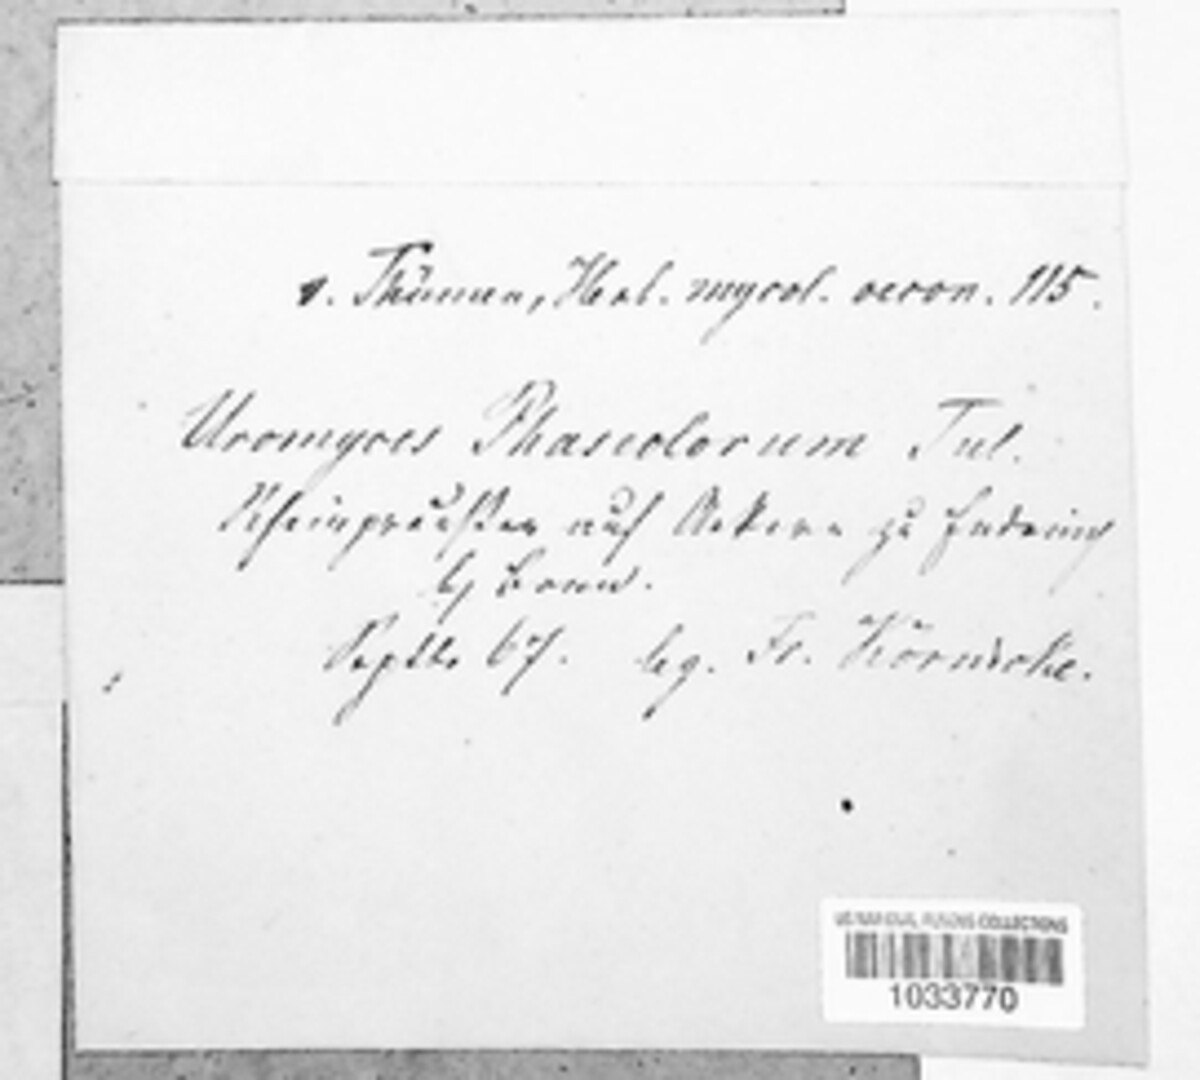 v. Thümen, Herb. mycol. oecon. 115.
Uromyces Phaseolorum Tul.
Rheinpreußen auf Aekern zu Endenich
bj Bonn.
Septbr 67. leg. Fr. Körnicke.
US NATIONAL FUNGUS COLLECTIONS
1033770